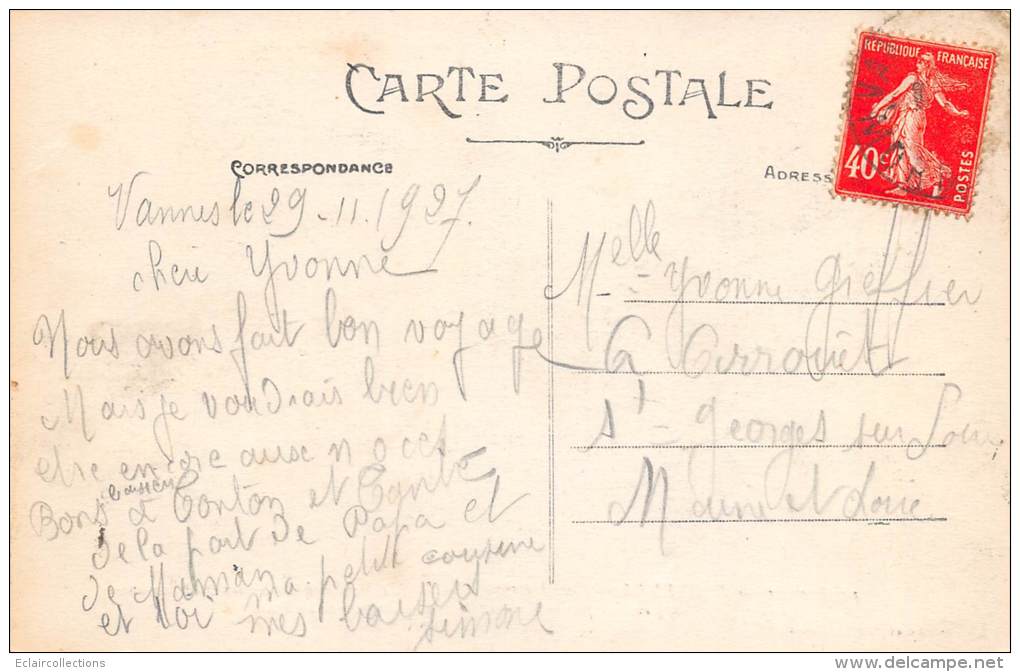 RÉPUBLIQUE FRANÇAISE
40c
POSTES
CARTE POSTALE
CORRESPONDANCE
ADRESS
Vannes le 29-11.1927.
cheri Yvonne
Nous avons fait bon voyage
Mais je voudrais bien
etre encore aux noces
Bons baisers à Tonton et Tante
de la part de Papa et
de Maman ma petit cousine
et toi mes baisers
Simone
Melle Yvonne
A
St-Georges sur Loire
Maine et Loire
Eclaircollections
www.delcampe.net